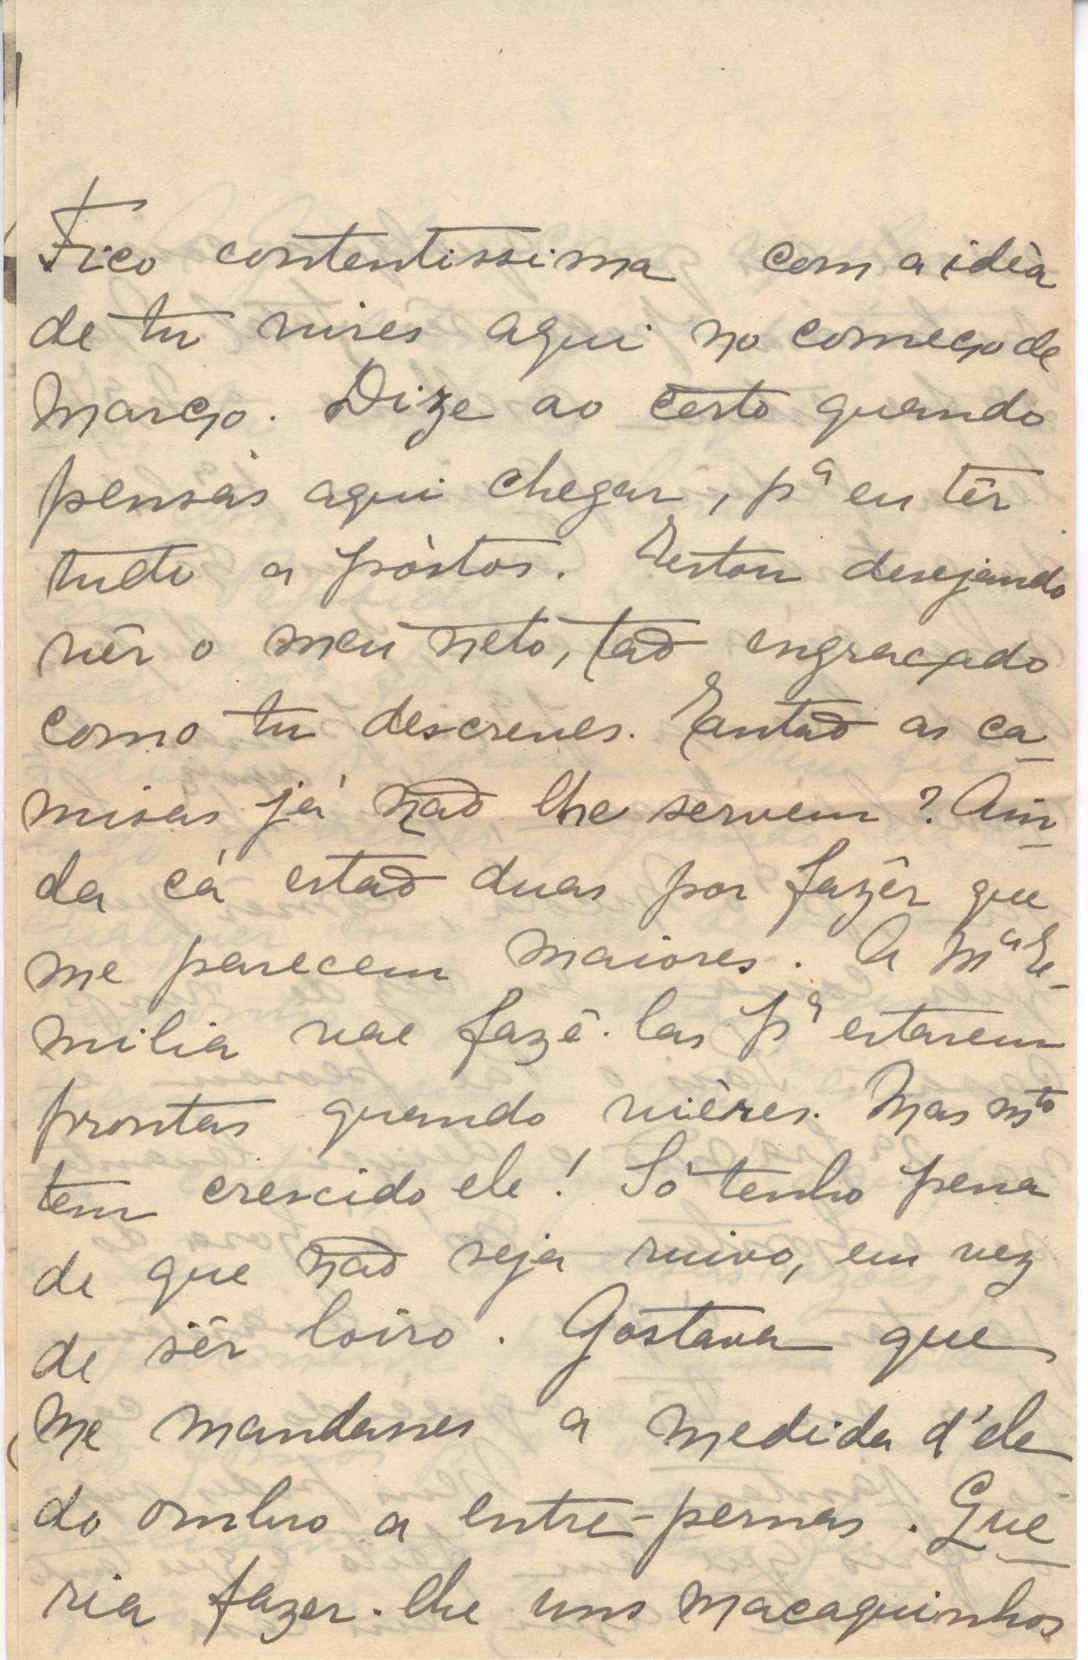 Fico contentissima com a idèa
de tu vires aqui no começo de
Março. Dize ao certo quando
pensas aqui chegar, pª eu têr
tudo a póstos. Estou desejando
vêr o meu neto, tão engraçado
como tu descreves. Entaõ as ca
misas já não lhe servem? Ain
da cá estaõ duas por fazêr que
me parecem maiores. A Mª E
milia vae fazê-las pª estarem
prontas quando vières. Mas mto
tem crescido ele! Só tenho pena
de que não seja ruivo, em vez
de sêr loiro. Gostava que
me mandasses a medida d'ele
do ombro a entre-pernas. Que
ria fazer-lhe uns macaquinhos